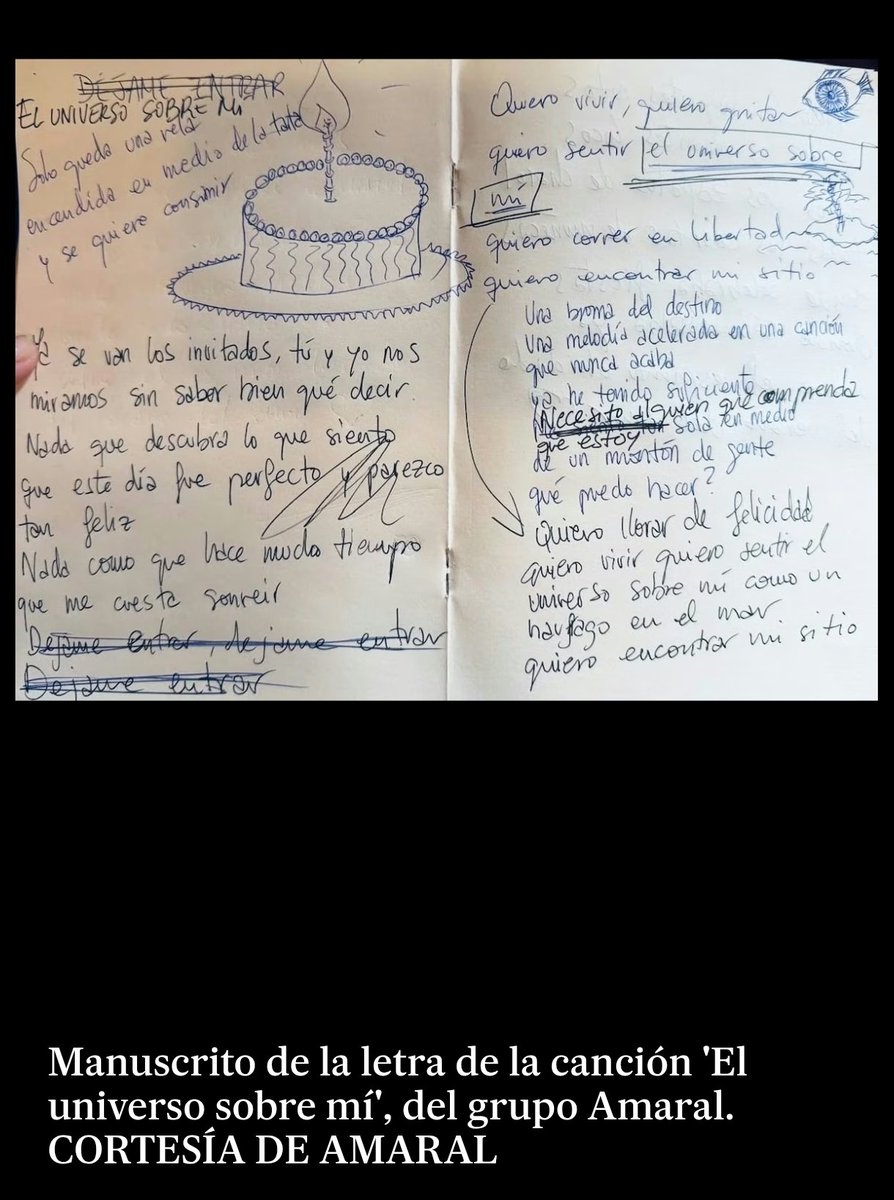 DÉJAME ENTRAR
EL UNIVERSO SOBRE MÍ
Sólo queda una vela
encendida en medio de la tarta
y se quiere consumir
Ya se van los invitados, tú y yo nos
miramos sin saber bien qué decir.
Nada que descubra lo que siento
que este día fue perfecto y parezco
tan feliz
Nada como que hace mucho tiempo
que me cuesta sonreir
Dejame entrar, dejame entrar
Dejame entrar
Quiero vivir, quiero gritar
quiero sentir el universo sobre
mí
quiero correr en libertad
quiero encontrar mi sitio
Una broma del destino
Una melodía acelerada en una canción
que nunca acaba
ya he tenido suficiente
Necesito alguien que comprenda
que estoy sola en medio
de un montón de gente
qué puedo hacer?
Quiero llorar de felicidad
quiero vivir quiero sentir el
universo sobre mí como un
naufrago en el mar
quiero encontrar mi sitio
Manuscrito de la letra de la canción 'El
universo sobre mí', del grupo Amaral.
CORTESÍA DE AMARAL